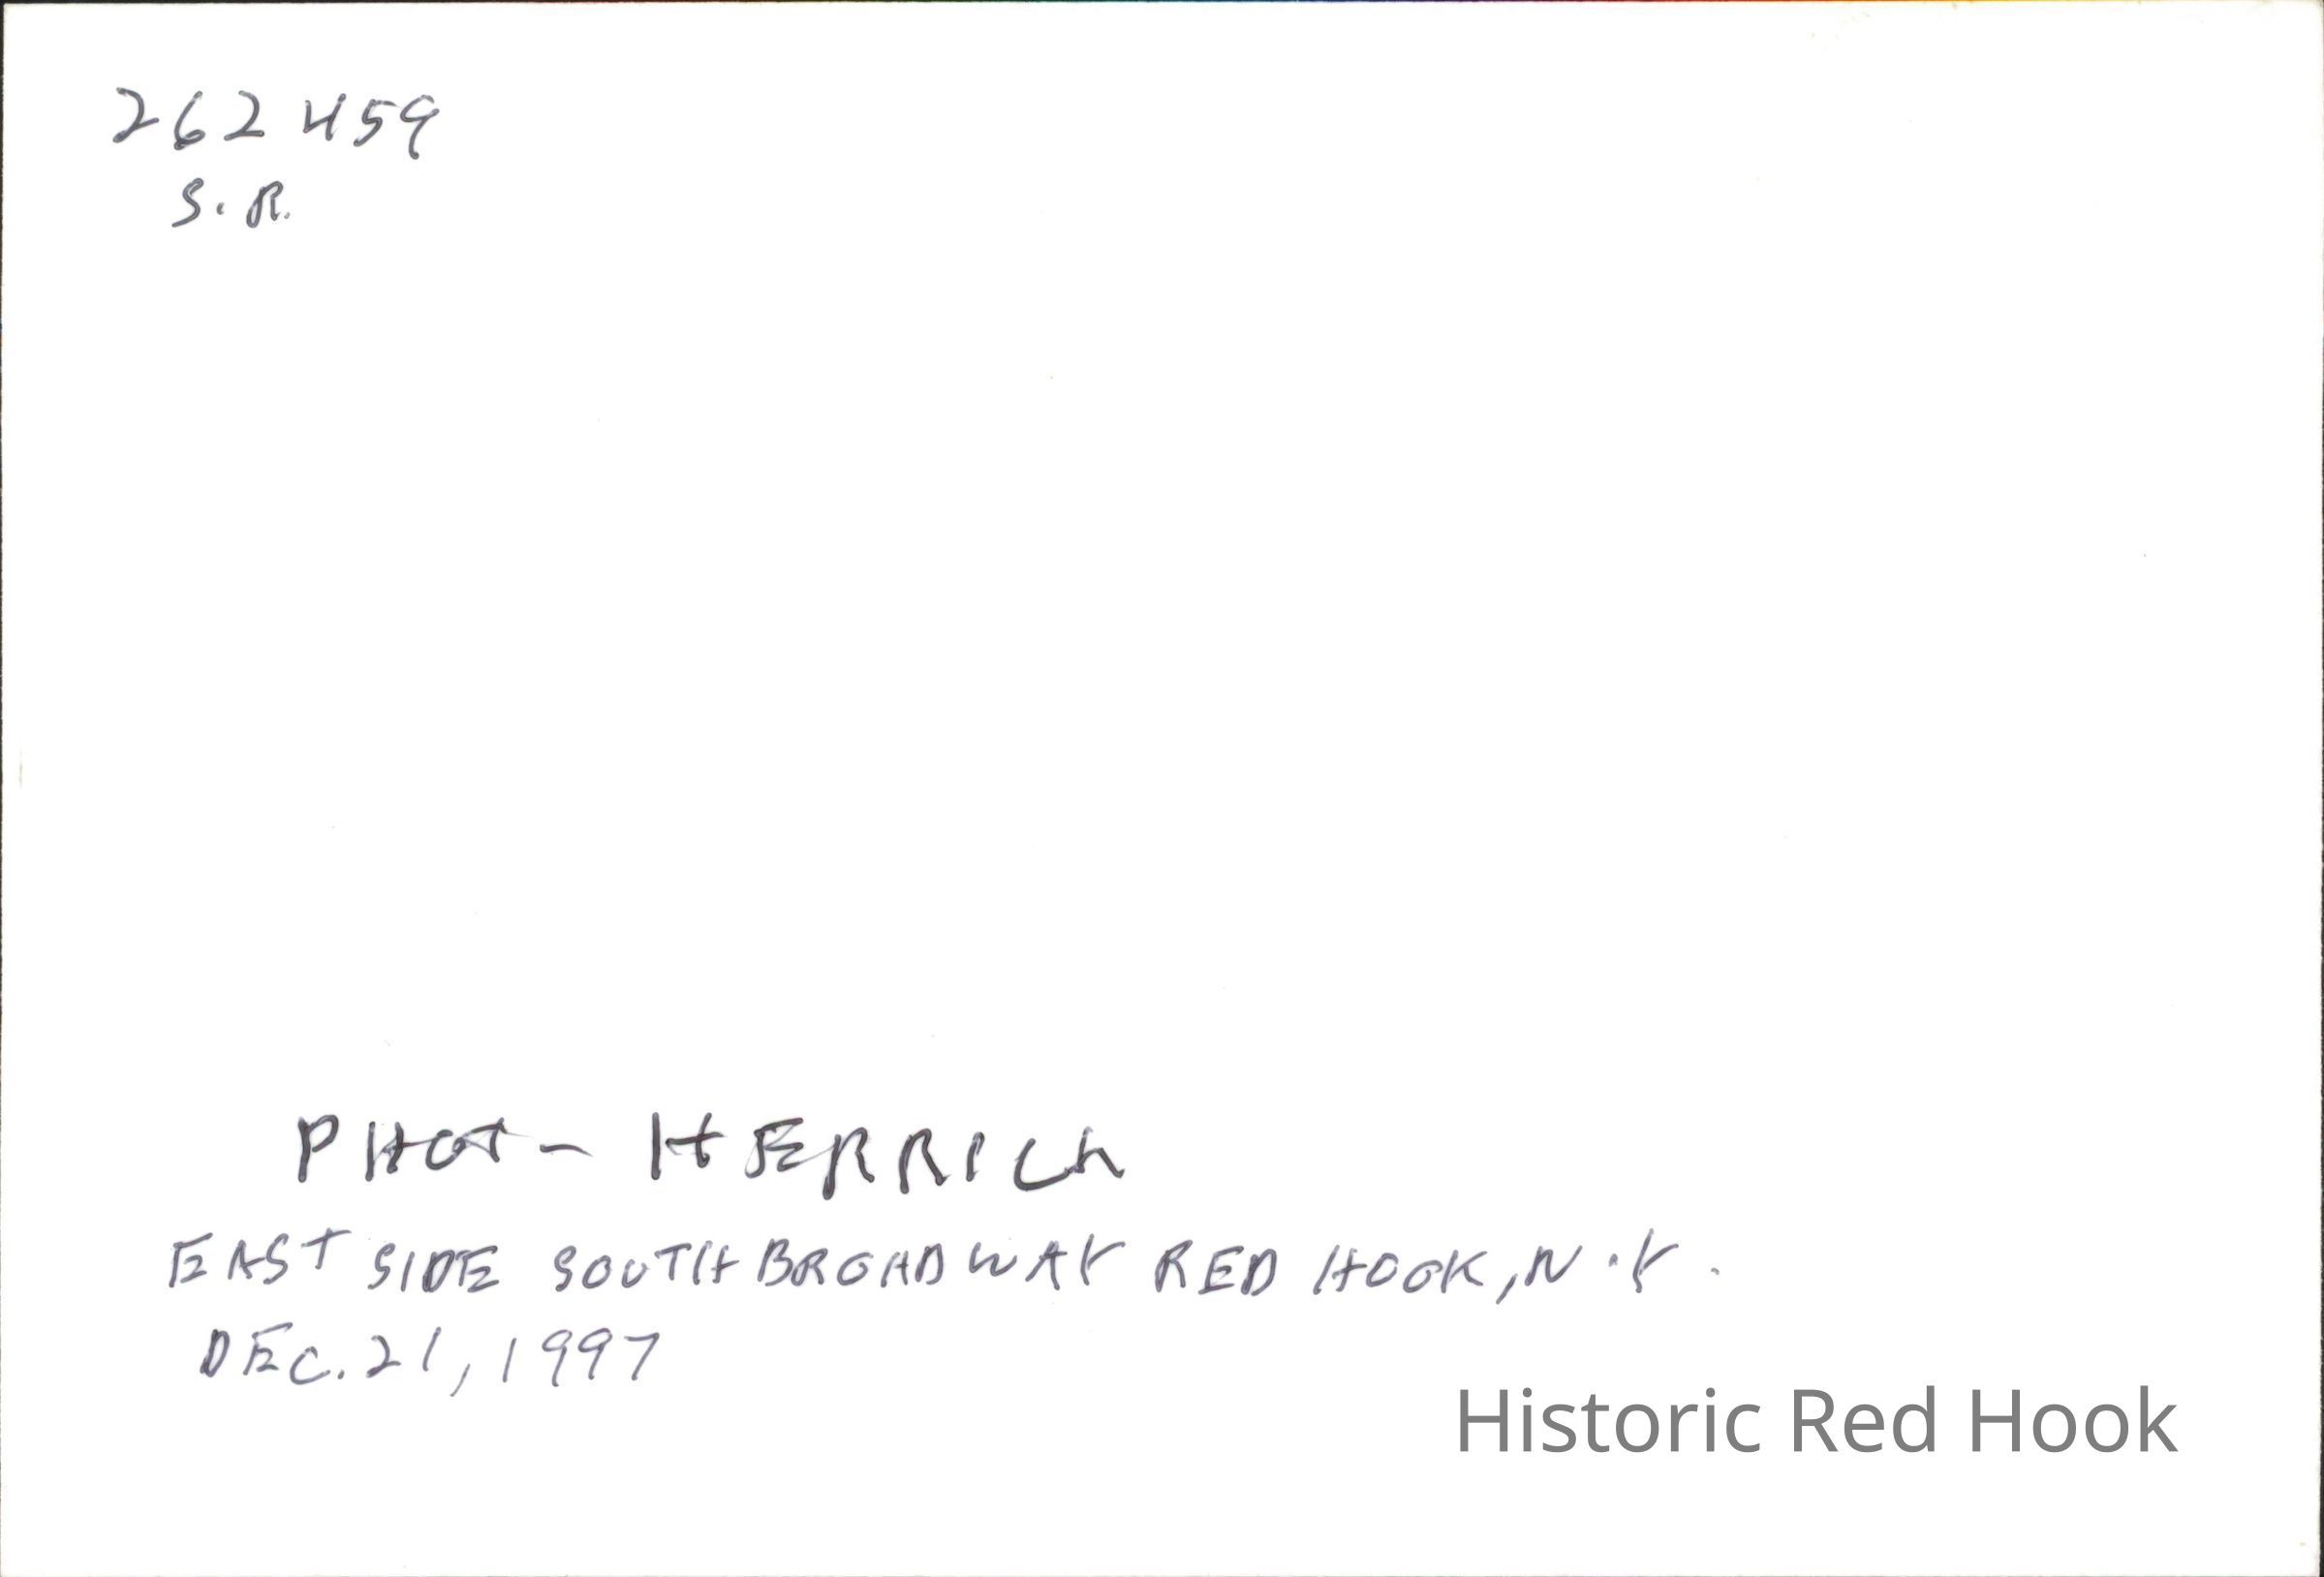 262459
S.R.
PHOT- HERRICK
EAST SIDE SOUTH BROADWAY RED HOOK, N.Y.
DEC. 21, 1997
Historic Red Hook